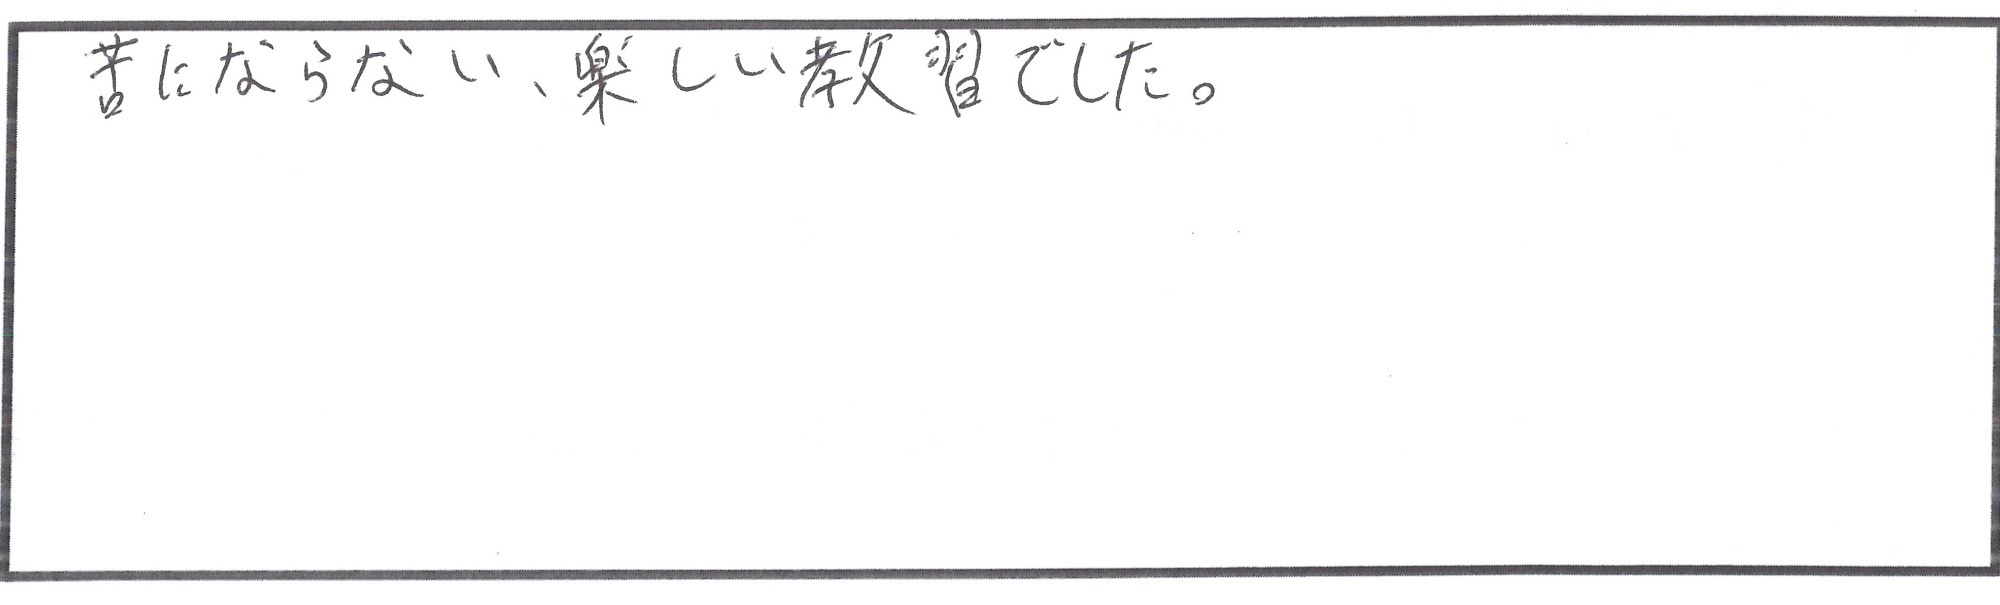 苦にならない、楽しい教習でした。